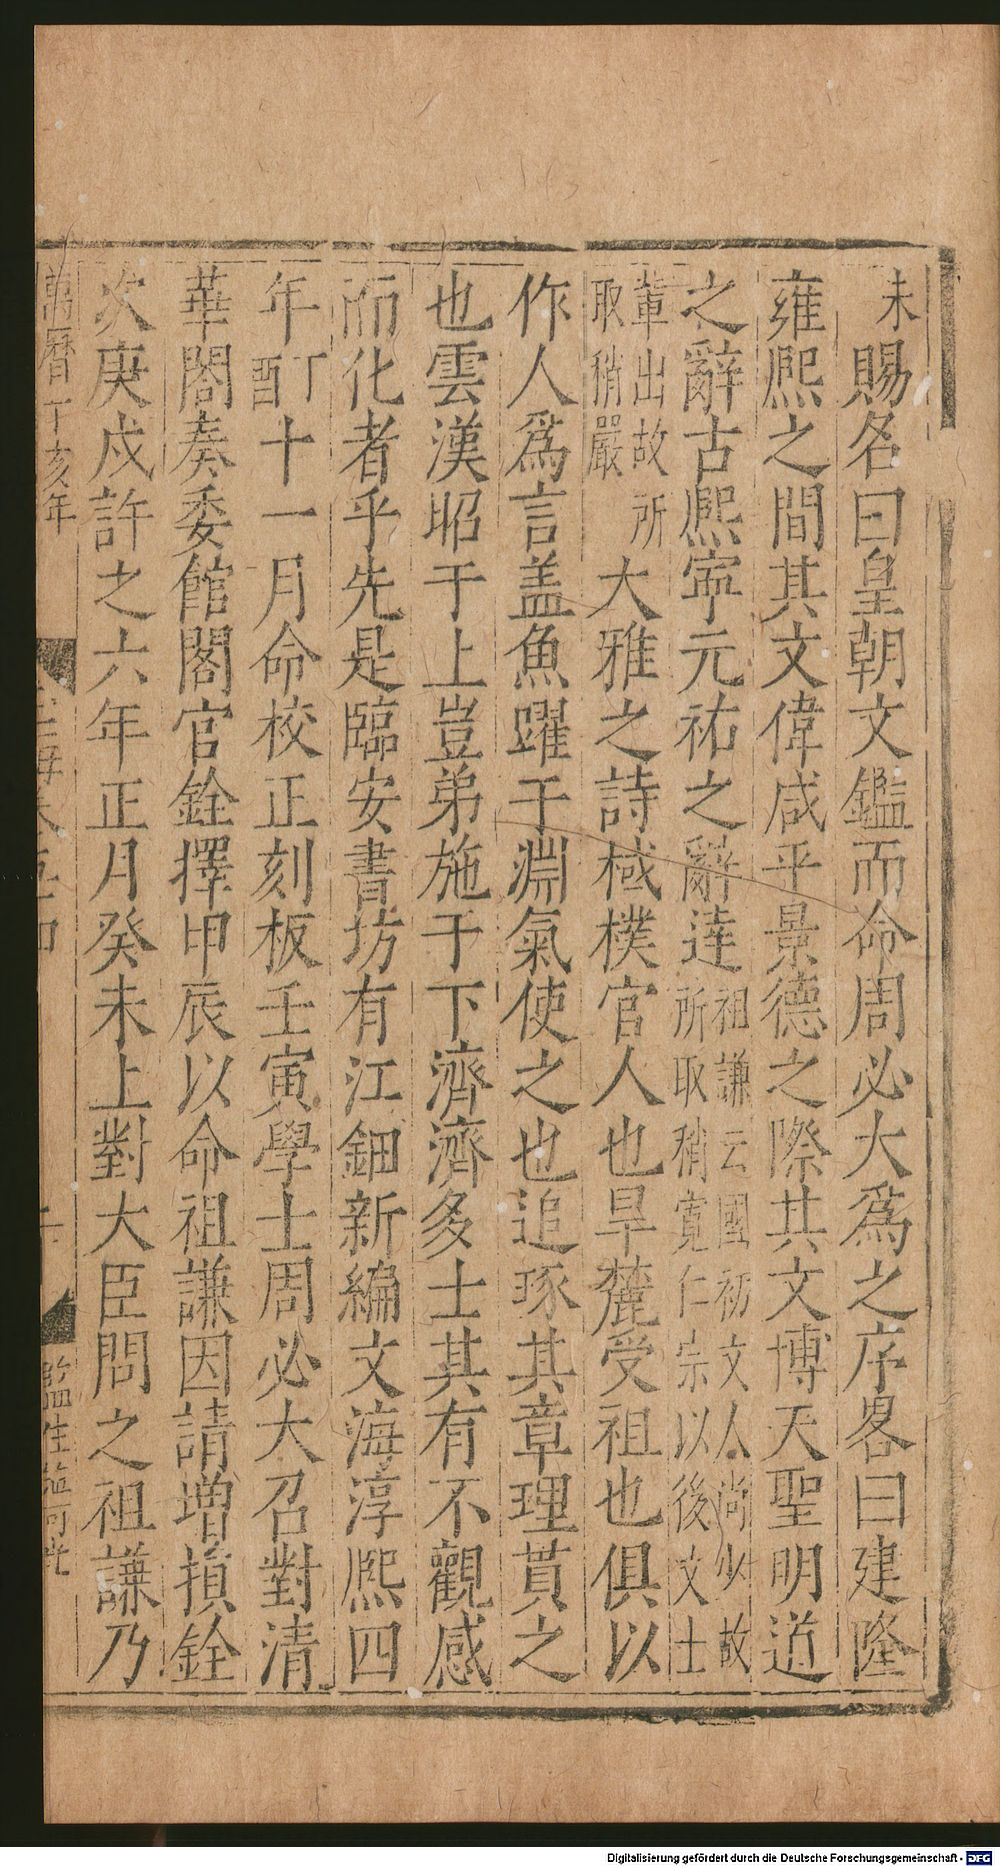 未賜名曰皇朝文鑑而命周必大爲之序畧曰建隆
雍熙之間其文偉咸平景德之際其文博天聖明道
之辭古熙寧元祐之辭逹祖謙云國初文人尚少故所取稍寛仁宗以後文士
輩出故所取稍嚴大雅之詩棫樸官人也旱麓受祖也俱以
作人爲言盖魚躍于淵氣使之也追琢其章理貫之
也雲漢昭于上豈弟施于下濟濟多士其有不觀感
而化者乎先是臨安書坊有江鈿新編文海淳熙四
年丁酉十一月命校正刻板壬寅學士周必大召對清
華閣奏委館閣官銓擇甲辰以命祖謙因請增損銓
次庚戌許之六年正月癸未上對大臣問之祖謙乃
萬曆丁亥年
玉海卷五十四
監生
Digitalisierung gefördert durch die Deutsche Forschungsgemeinschaft - DFG